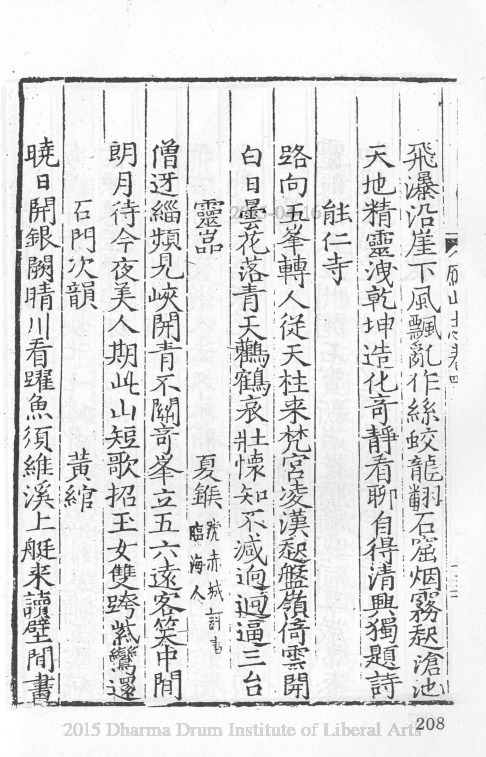 飛瀑沿崖下風飄亂作絲蛟龍翻石窟烟霧起滄池
天地精靈洩乾坤造化奇靜看聊自得清興獨題詩
能仁寺
路向五峯轉人從天柱来梵宮凌漢起盤嶺倚雲開
白日曇花落青天鸛鶴哀壯懷知不減逈逈逼三台
靈嵓 夏鍭 號赤城討書 臨海人
僧迓緇頻見峽開青不關奇峯立五六遠客笑中間
明月待今夜美人期此山短歌招玉女雙跨紫鸞還
石門次韻 黃綰
曉日開銀闕晴川看躍魚須維溪上艇来讀壁間書
208
2015 Dharma Drum Institute of Liberal Arts